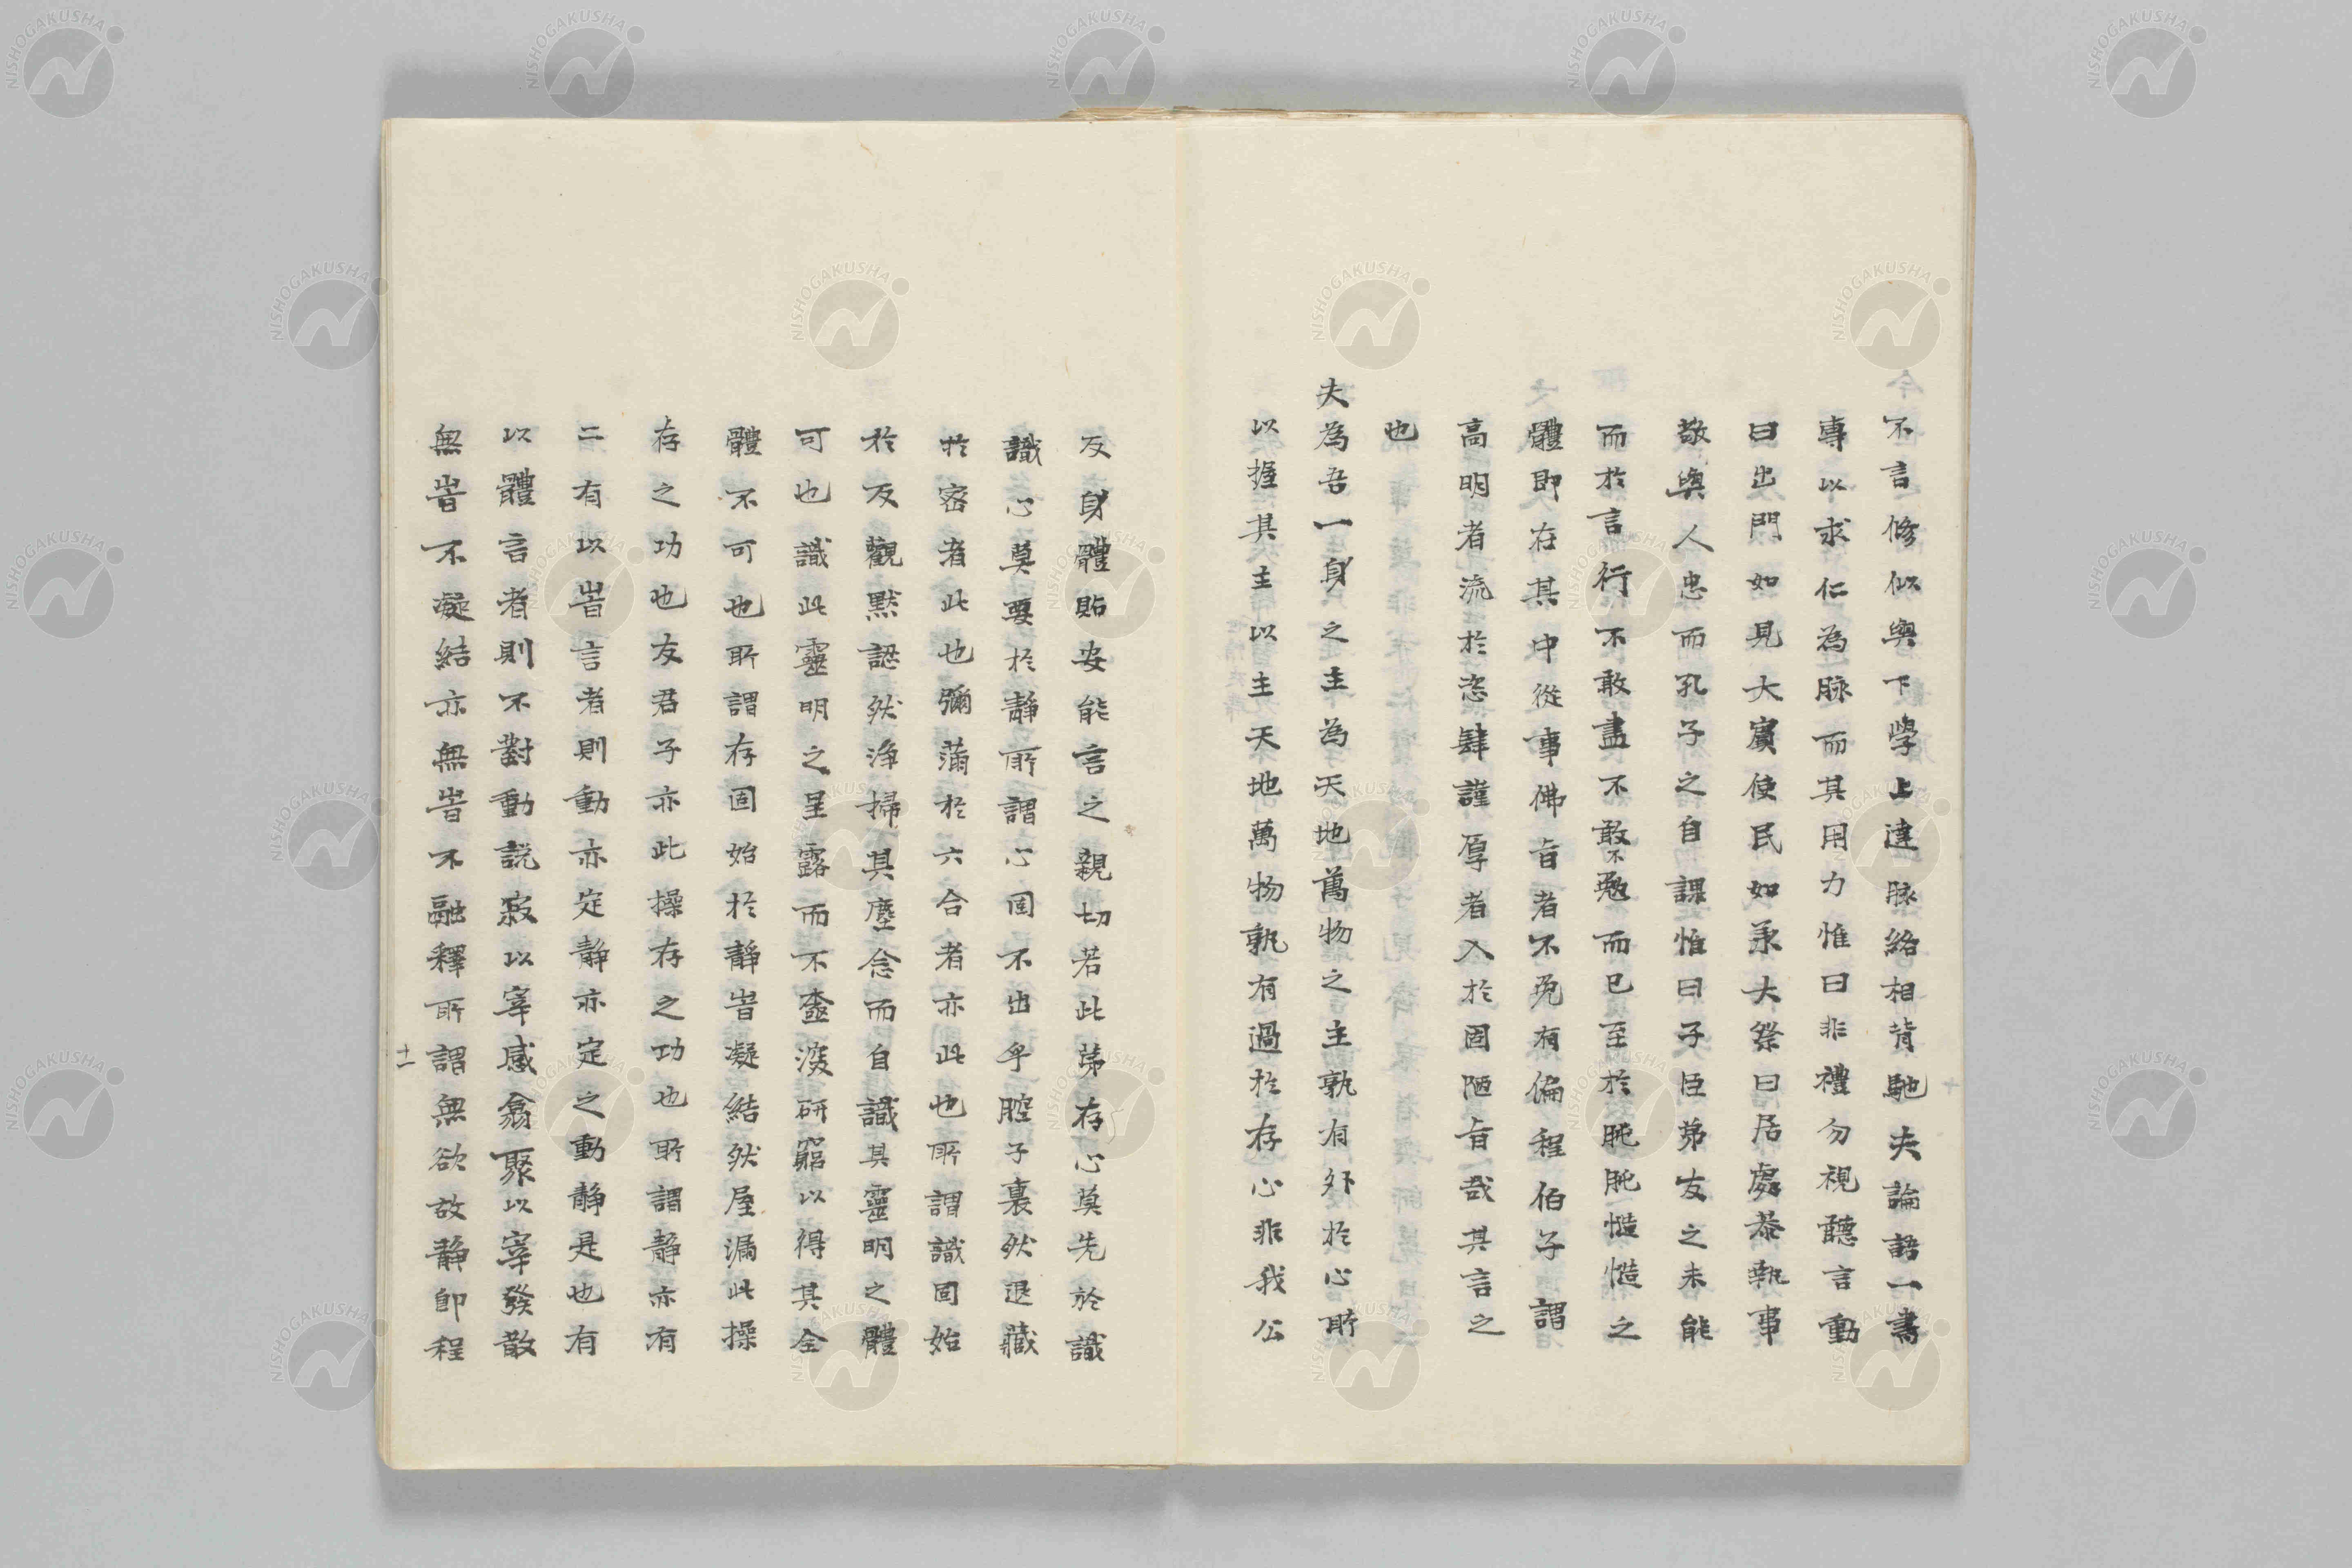 不言修似與下學上達脉絡相背馳夫論語一書
專以求仁為脉而其用力惟曰非禮勿視聽言動
曰出門如見大賓使民如承大祭曰居處恭執事
敬與人忠而孔子之自課惟曰子臣弟友之未能
而於言行不敢盡不敢不勉而已至於肫肫慥慥之
體即在其中從事佛旨者不免有偏程伯子謂
高明者流於恣肆謹厚者入於固陋旨哉其言之
也
夫為吾一身之主為天地萬物之主孰有外於心所
以握其主以主天地萬物孰有過於存心非我公
反身體貼安能言之親切若此第存心莫先於識
識心莫要於靜所謂心固不出乎腔子裏然退藏
於密者此也彌滿於六合者亦此也所謂識固始
於反觀黙認然淨掃其塵念而自識其靈明之體
可也識此靈明之呈露而不查滓研窮以得其全
體不可也所謂存固始於靜旹凝結然屋漏此操
存之功也友君子亦此操存之功也所謂靜亦有
二有以旹言者則動亦定靜亦定之動靜是也有
以體言者則不對動説寂以宰感翕聚以宰發散
無旹不凝結亦無旹不融釋所謂無欲故靜即程
十一
NISHOGAKUSHA